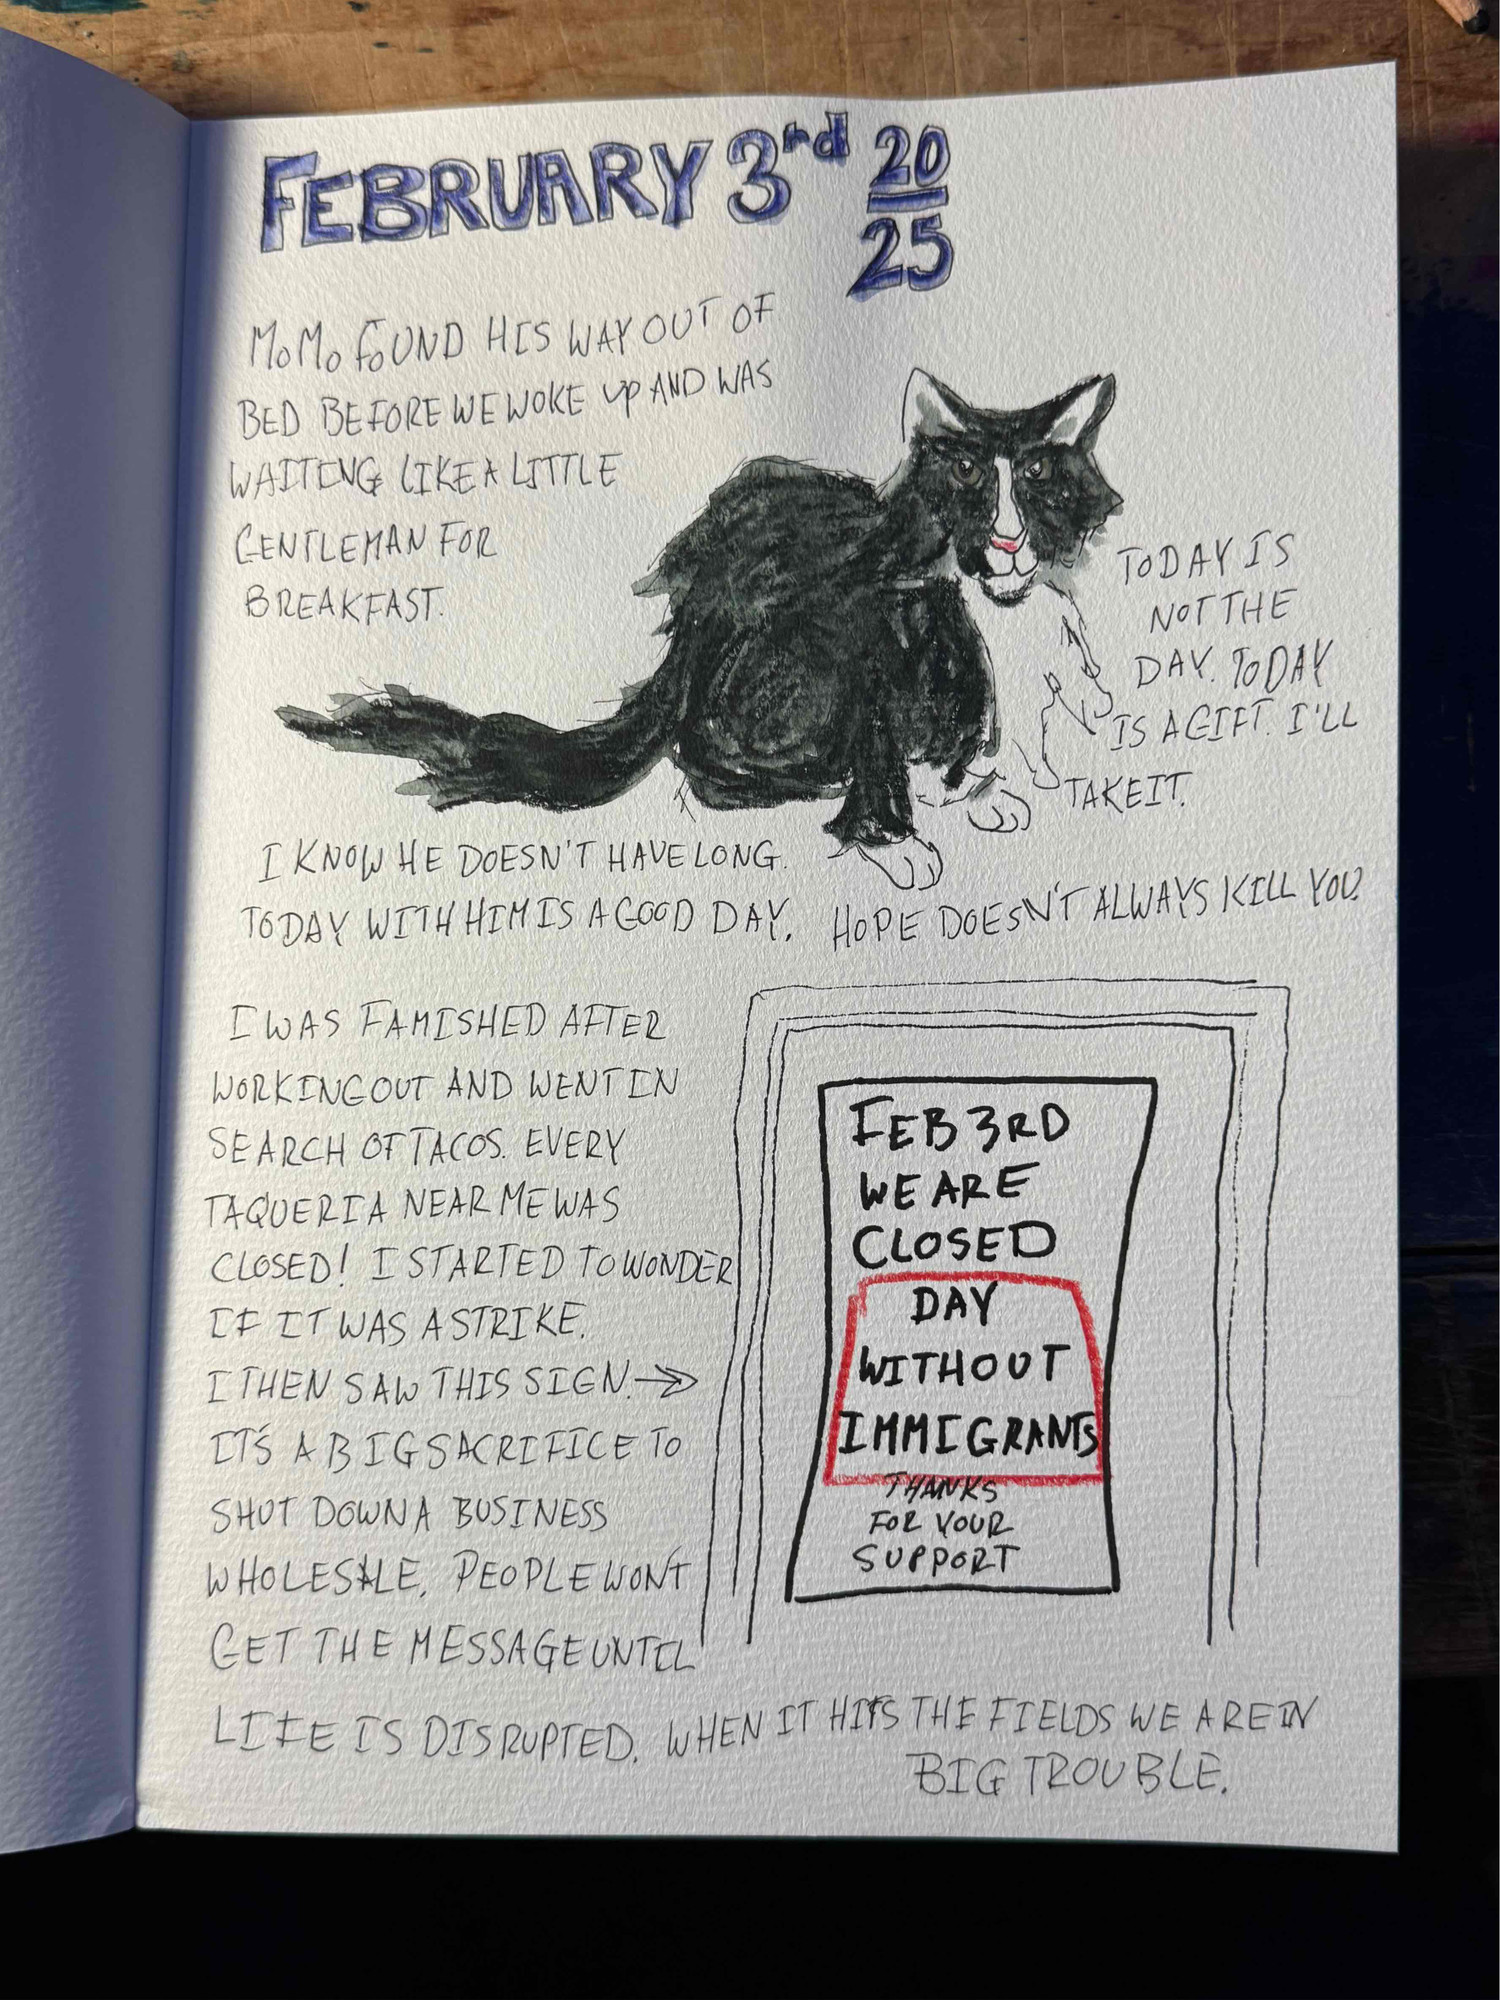 FEBRUARY 3rd 20
25
MOMO FOUND HIS WAY OUT OF
BED BEFORE WE WOKE UP AND WAS
WAITING LIKE A LITTLE
GENTLEMAN FOR
BREAKFAST.
TODAY IS
NOT THE
DAY. TODAY
IS A GIFT. I'LL
TAKE IT.
I KNOW HE DOESN'T HAVE LONG.
TODAY WITH HIM IS A GOOD DAY. HOPE DOESN'T ALWAYS KILL YOU.
I WAS FAMISHED AFTER
WORKING OUT AND WENT IN
SEARCH OF TACOS. EVERY
TAQUERIA NEAR ME WAS
CLOSED! I STARTED TO WONDER
IF IT WAS A STRIKE.
I THEN SAW THIS SIGN.
IT'S A BIG SACRIFICE TO
SHUT DOWN A BUSINESS
WHOLESALE. PEOPLE WON'T
GET THE MESSAGE UNTIL
LIFE IS DISRUPTED. WHEN IT HITS THE FIELDS WE ARE IN
BIG TROUBLE.
FEB 3RD
WE ARE
CLOSED
DAY
WITHOUT
IMMIGRANTS
THANKS
FOR YOUR
SUPPORT